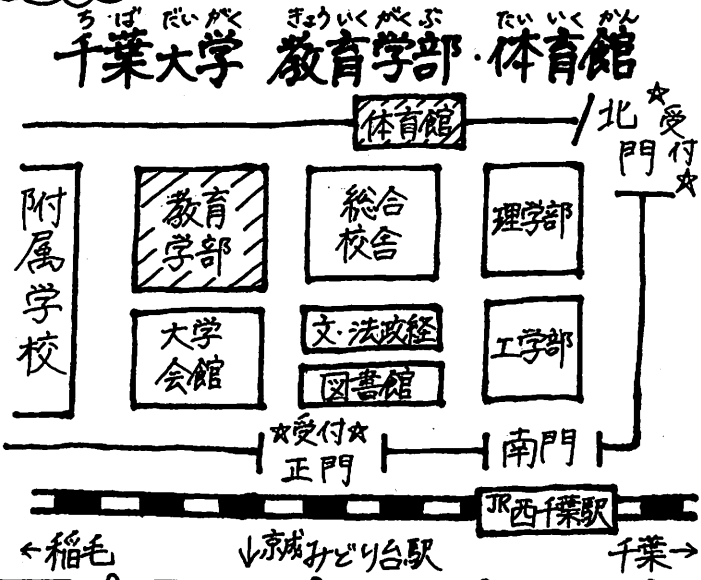 ちば だいがく きょういくがくぶ たいいくかん
千葉大学 教育学部・体育館
体育館
北門
☆受付☆
附属学校
教育
学部
総合
校舎
理学部
大学
会館
文・法政経
図書館
工学部
☆受付☆
正門
南門
JR西千葉駅
←稲毛
↓京成みどり台駅
千葉→